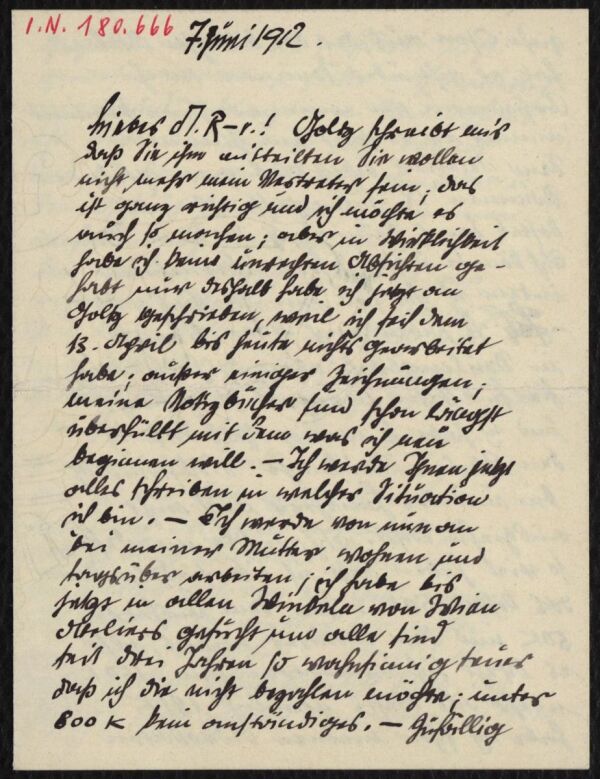 I.N. 180.666
7. Juni 1912.
Liebes M. R-r.! Goltz schreibt mir
daß Sie ihm mitteilten Sie wollen
nicht mehr mein Vertreter sein, das
ist ganz richtig und ich möchte es
auch so machen; aber in Wirklichkeit
habe ich keine unrechten Absichten ge-
habt nur deshalb habe ich jetzt an
Goltz geschrieben, weil ich seit dem
13. April bis heute nichts gearbeitet
habe; außer einiger Zeichnungen,
meine Notizbücher sind schon längst
überfüllt mit dem was ich neu
beginnen will. – Ich werde Ihnen jetzt
alles schreiben in welcher Situation
ich bin. – Ich werde von nun an
bei meiner Mutter wohnen und
tagsüber arbeiten; ich habe bis
jetzt in allen Winkeln von Wien
Atteliers gesucht und alle sind
seit drei Jahren so wahnsinnig teuer
daß ich die nicht bezahlen möchte; unter
800 K kein anständiges. – Zufällig